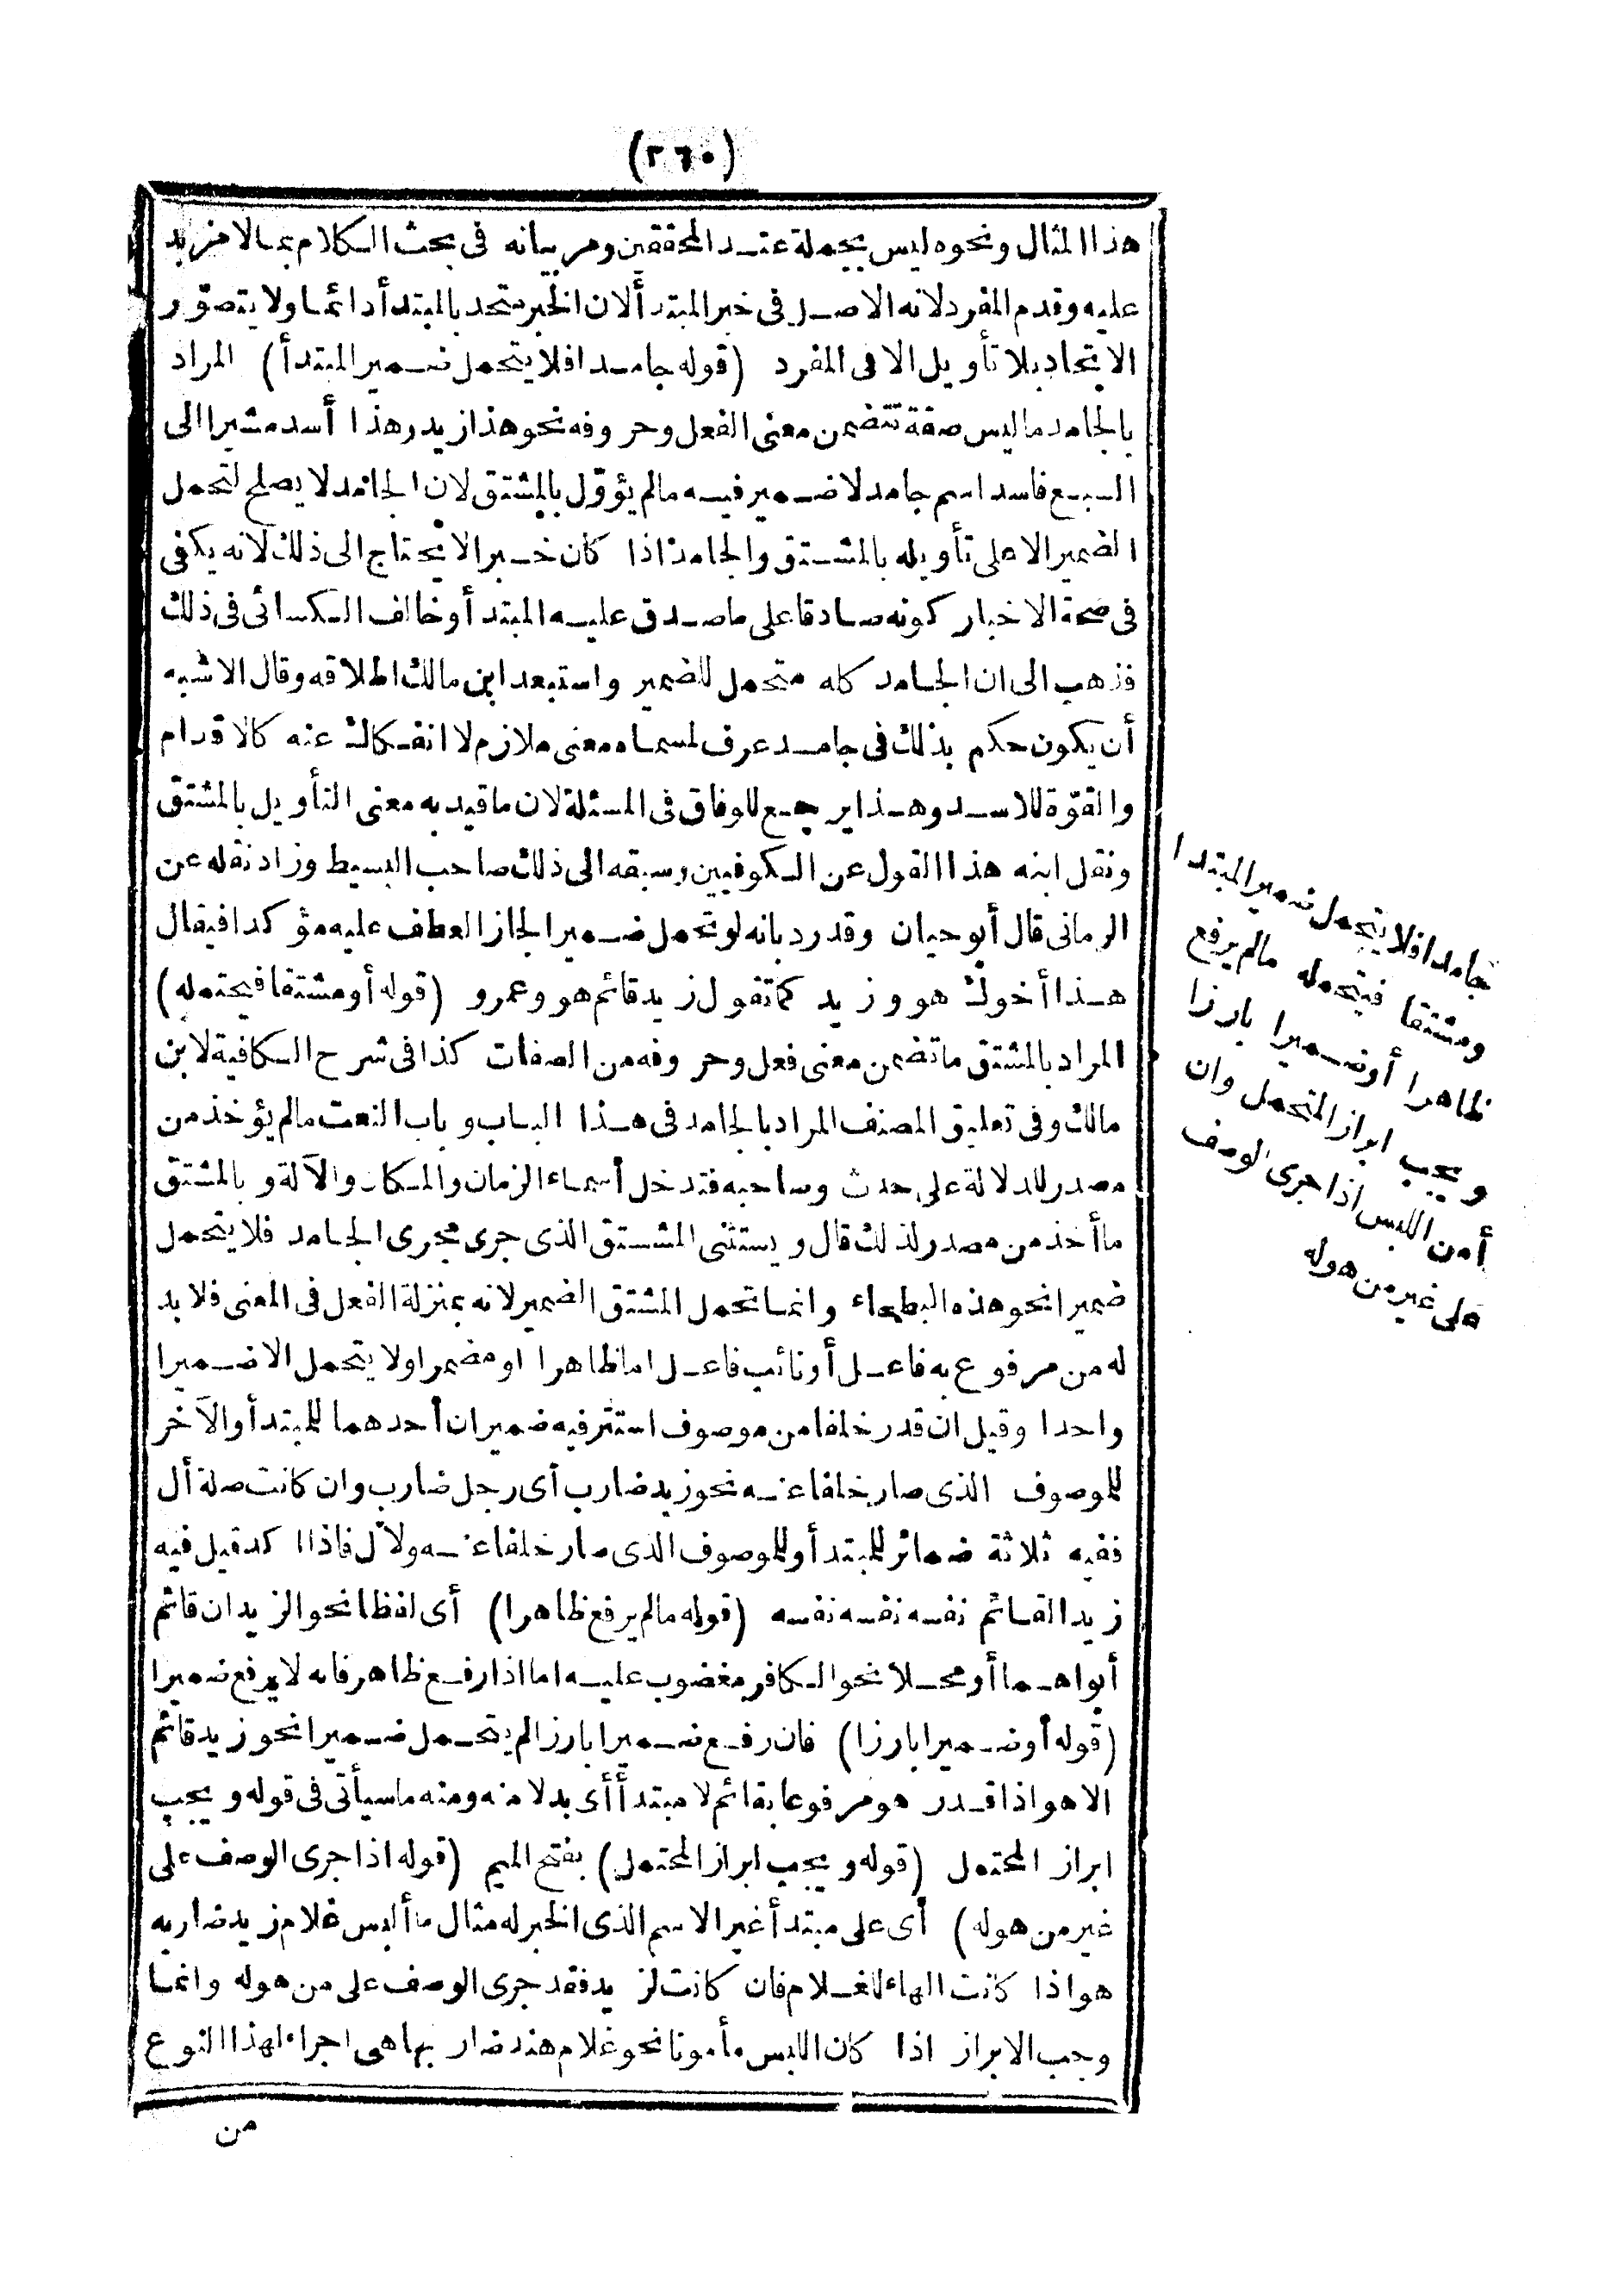 (٢٦٠)
هذا المثال ونحوه ليس بجملة عند المحققين ومر بيانه فى بحث الكلام بما لا مزيد
عليه وقدم المفرد لانه الاصل فى خبر المبتدأ لان الخبر متحد بالمبتدأ دائما ولا يتصوّر
الاتحاد بلا تأويل الا فى المفرد (قوله جامدا فلا يتحمل ضمير المبتدأ) المراد
بالجامد ما ليس صفة تتضمن معنى الفعل وحروفه نحو هذا زيد وهذا أسد مشيرا الى
السبع فاسد اسم جامد لا ضمير فيه ما لم يؤوّل بالمشتق لان الجامد لا يصلح لتحمل
الضمير الا على تأويله بالمشتق والجامد اذا كان خبرا لا يحتاج الى ذلك لانه يكفى
فى صحة الاخبار كونه صادقا على ما صدق عليه المبتدأ وخالف الكسائى فى ذلك
فذهب الى ان الجامد كله متحمل للضمير واستبعد ابن مالك اطلاقه وقال الاشبه
أن يكون حكم بذلك فى جامد عرف لمسماه معنى ملازم لا انفكاك عنه كالاقدام
والقوّة للاسد وهذا يرجع للوفاق فى المسئلة لان ما قيد به معنى التأويل بالمشتق
ونقل ابنه هذا القول عن الكوفيين وسبقه الى ذلك صاحب البسيط وزاد نقله عن
الرمانى قال أبو حيان وقد رد بانه لو تحمل ضميرا لجاز العطف عليه مؤكدا فيقال
هذا أخوك هو وزيد كما تقول زيد قائم هو وعمرو (قوله أو مشتقا فيحتمله)
المراد بالمشتق ما تضمن معنى فعل وحروفه من الصفات كذا فى شرح الكافية لابن
مالك وفى تعليق المصنف المراد بالجامد فى هذا الباب وباب النعت ما لم يؤخذ من
مصدر للدلالة على حدث وصاحبه فتدخل أسماء الزمان والمكان والآلة وبالمشتق
ما أخذ من مصدر لذلك قال ويستثنى المشتق الذى جرى مجرى الجامد فلا يتحمل
ضميرا نحو هذه البطحاء وانما تحمل المشتق الضمير لانه بمنزلة الفعل فى المعنى فلا بد
له من مرفوع به فاعل أو نائب فاعل اما ظاهرا او مضمرا ولا يتحمل الا ضميرا
واحدا وقيل ان قدر خلفا من موصوف استتر فيه ضميران أحدهما للمبتدأ والآخر
للموصوف الذى صار خلفا عنه نحو زيد ضارب أى رجل ضارب وان كانت صلة أل
ففيه ثلاثة ضمائر للمبتدأ وللموصوف الذى صار خلفا عنه ولأل فاذا اكد قيل فيه
زيد القائم نفسه نفسه نفسه (قوله ما لم يرفع ظاهرا) أى لفظا نحو الزيدان قائم
أبواهما أو محلا نحو الكافر مغضوب عليه اما اذا رفع ظاهر فانه لا يرفع ضميرا
(قوله أو ضميرا بارزا) فان رفع ضميرا بارزا لم يتحمل ضميرا نحو زيد قائم
الا هو اذا قدر هو مرفوعا بقائم لا مبتدأ أى بدلا منه ومنه ما سيأتى فى قوله ويجب
ابراز المحتمل (قوله ويجب ابراز المحتمل) بفتح الميم (قوله اذا جرى الوصف على
غير من هو له) أى على مبتدأ غير الاسم الذى الخبر له مثال ما ألبس غلام زيد ضاربه
هو اذا كانت الهاء للغلام فان كانت لزيد فقد جرى الوصف على من هو له وانما
وجب الابراز اذا كان اللبس مأمونا نحو غلام هند ضاربها هى اجراء لهذا النوع
من
جامدا فلا يتحمل ضمير المبتدا
ومشتقا فيتحمله مالم يرفع
ظاهرا أو ضميرا بارزا
ويجب ابراز المتحمل وان
أمن اللبس اذا جرى الوصف
على غير من هو له